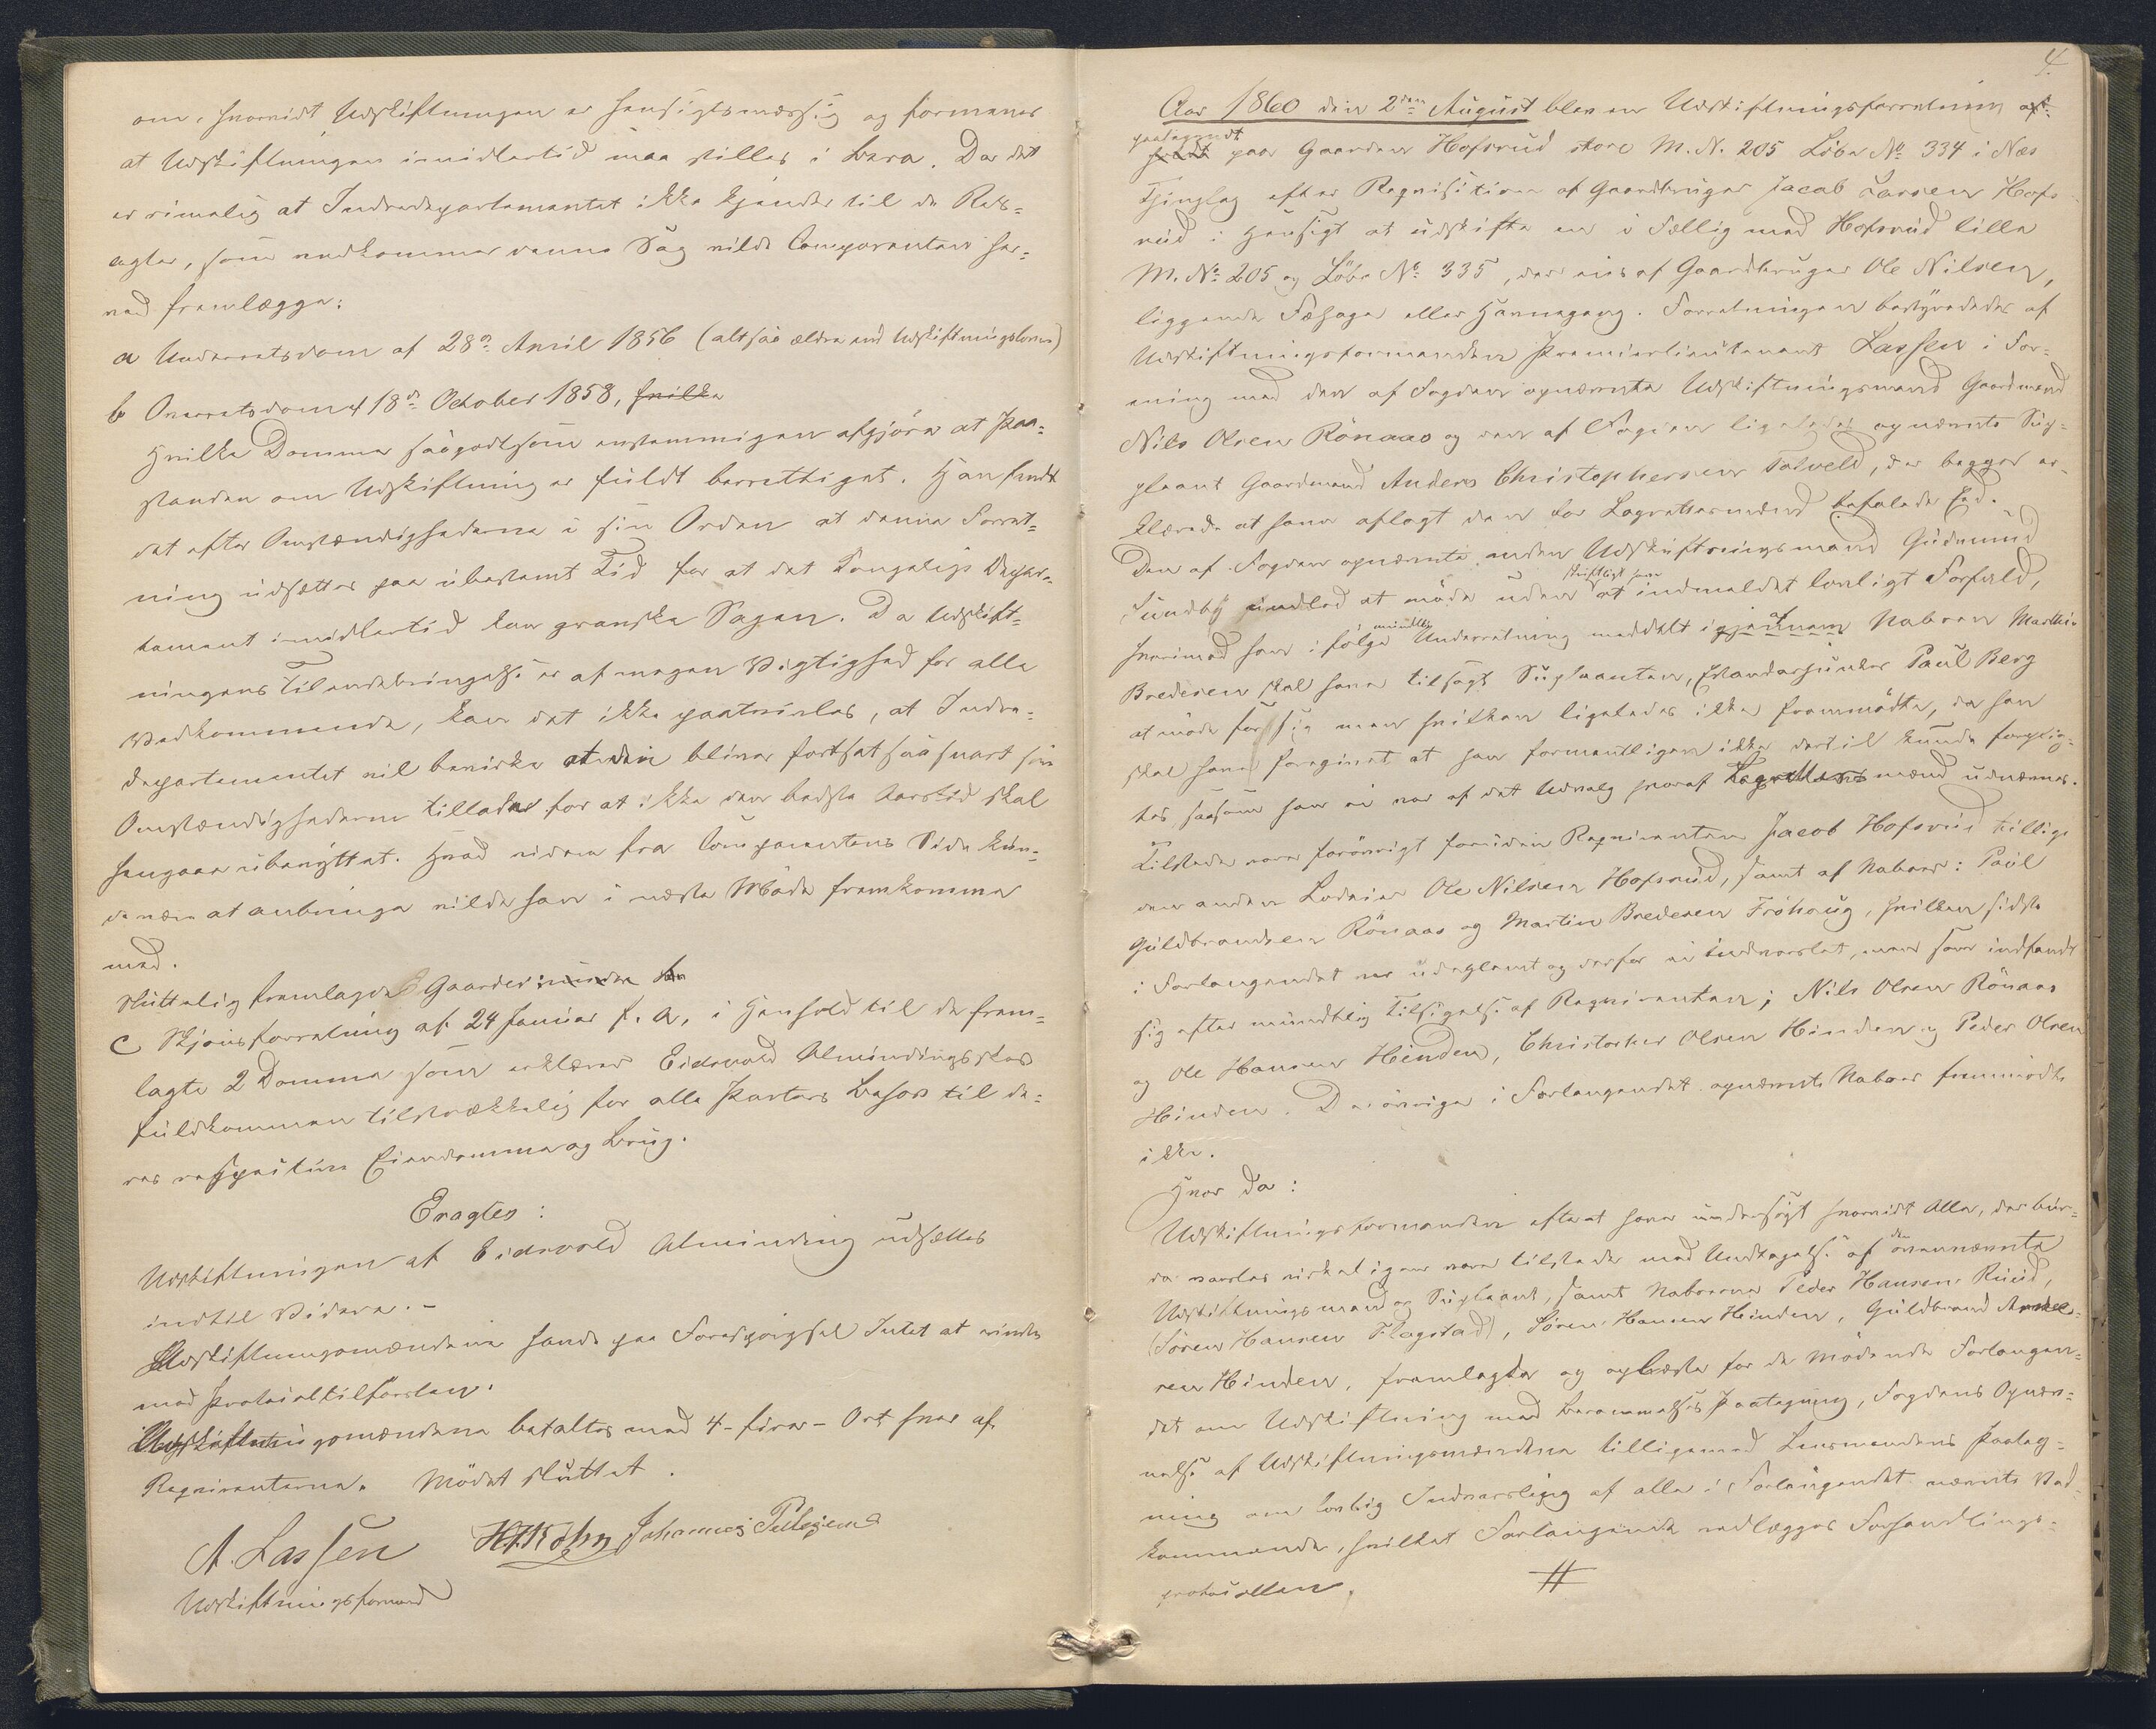 om, hvorvidt Udskiftningen er hensigtsmæssig og formener
at Udskiftningen imidlertid maa stilles i Bero. Da det
er rimelig at Indredepartementet ikke kjender til de Rets-
acter, som vedkommer denne Sag vilde Comparenten her-
ved fremlægge:
a Underretsdom af 28de April 1856 (altsaa ældre end Udskiftningsloven)
b Overretsdom af 18de October 1858, hvilke
Hvilke Domme saagodtsom enstemmigen afgjöre at Paa-
standen om Udskiftning er fuldt berettiget. Han fandt
det efter Omstændighederne i sin Orden at denne Forret-
ning udsættes paa ubestemt Tid for at det Kongelige Depar-
tement imidlertid kan granske Sagen. Da Udskift-
ningens Tilendebringelse er af megen Vigtighed for alle
Vedkommende, kan det ikke paatvivles, at Indre-
departementet vil bevirke at den bliver fortsat saasnart som
Omstændighederne tillader for at ikke den bedste Aarstid skal
hengaae ubenyttet. Hvad videre fra Comparentens Side kun-
de være at anbringe vilde han i næste Möde fremkomme
med.
Sluttelig fremlagde Gaarder
C Skjönsforretning af 24 Januar f. A, i Henhold til de frem-
lagte 2 Domme som erklærer Eidsvold Almindingsskov
fuldkommen tilstrækkelig for alle Parters Behov til de-
res respective Eiendomme og Brug.
Eragtes:
Udskiftningen af Eidsvold Alminding udsættes
indtil Videre. -
Udskiftningsmændene havde paa Forespörgsel Intet at erindre
mod Protocoltilförslen.
Udskiftningsmændene betaltes med 4 - fire - Ort hver af
Requirenterne. Mödet sluttet.
A. Lassen Johannes
Udskiftningsformand
4.
Aar 1860 den 2den August blev en Udskiftningsforretning
paabegyndt
paa Gaarden Hofsrud store M. N. 205 Löbe No 334 i Næs
Thinglag efter Requisition af Gaardbruger Jacob Larsen Hofs
rud i Hensigt at udskifte en i Fællig med Hofsrud lille
M. No 205 og Löbe No 335, der eies af Gaardbruger Ole Nilsen,
liggende Fæhage eller Havnegang. Forretningen bestyrededes af
Udskiftningsformanden Premierlieutenant Lassen i For-
ening med den af Fogden opnævnte Udskiftningsmand Gaardmand
Nils Olsen Rönaas og den af Fogden ligeledes opnævnte Sup-
pleant Gaardmand Anders Christophersen Tolveld, der begge er-
klærede at have aflagt den for Lagrettesmænd befalede Eed.
Den af Fogden opnævnte anden Udskiftningsmand Gudmund
skriftligt have
Sundby undlod at möde uden at indmeldet lovligt Forfald,
mundtlig af
hvorimod han i fölge Underretning meddelt igjennem Naboen Martin
Bredesen skal have tilsagt Suppleanten, Standarjunker Paul Berg
at möde for sig men hvilken ligeledes ikke fremmödte, da han
skal have foregivet at han formentligen ikke dertil kunde forplig-
tes saasom han ei var af det Udvalg hvoraf Lagrettesmænd udnævnes.
Tilstede vare forövrigt foruden Requirenten Jacob Hofsrud tillige
den anden Lodeier Ole Nilsen Hofsrud, samt af Naboer: Paul
Guldbrandsen Rönaas og Martin Bredesen Fröhaug, hvilken sidste
i Forlangendet var udeglemt og derfor ei indvarslet, men som indfandt
sig efter mundtlig Tilsigelse af Requirenten; Nils Olsen Rönaas
og Ole Hansen Hinden, Christopher Olsen Hinden og Peder Olsen
Hinden. De övrige i Forlangendet opnævnte Naboer fremmödte
ikke.
Hvor da:
Udskiftningsformanden efterat have undersögt hvorvidt Alle, der bur-
den
de varsles virkeligen vare tilstede med Undtagelse af ovennævnte
Udskiftningsmand og Suppleant, samt Naboerne Peder Hansen Ruud,
(Sören Hansen Flagstad), Sören Hansen Hinden, Guldbrand
sen Hinden, fremlagde og oplæste for de Mödende Forlangen-
det om Udskiftning med Berammelses Paategning, Fogdens Opnæv-
nelse af Udskiftningsmændene tilligemed Lensmandens Paateg-
ning om lovlig Indvarsling af alle i Forlangendet nævnte Ved-
kommende, hvilket Forlangende vedlægges Forhandlings-
protocollen. #